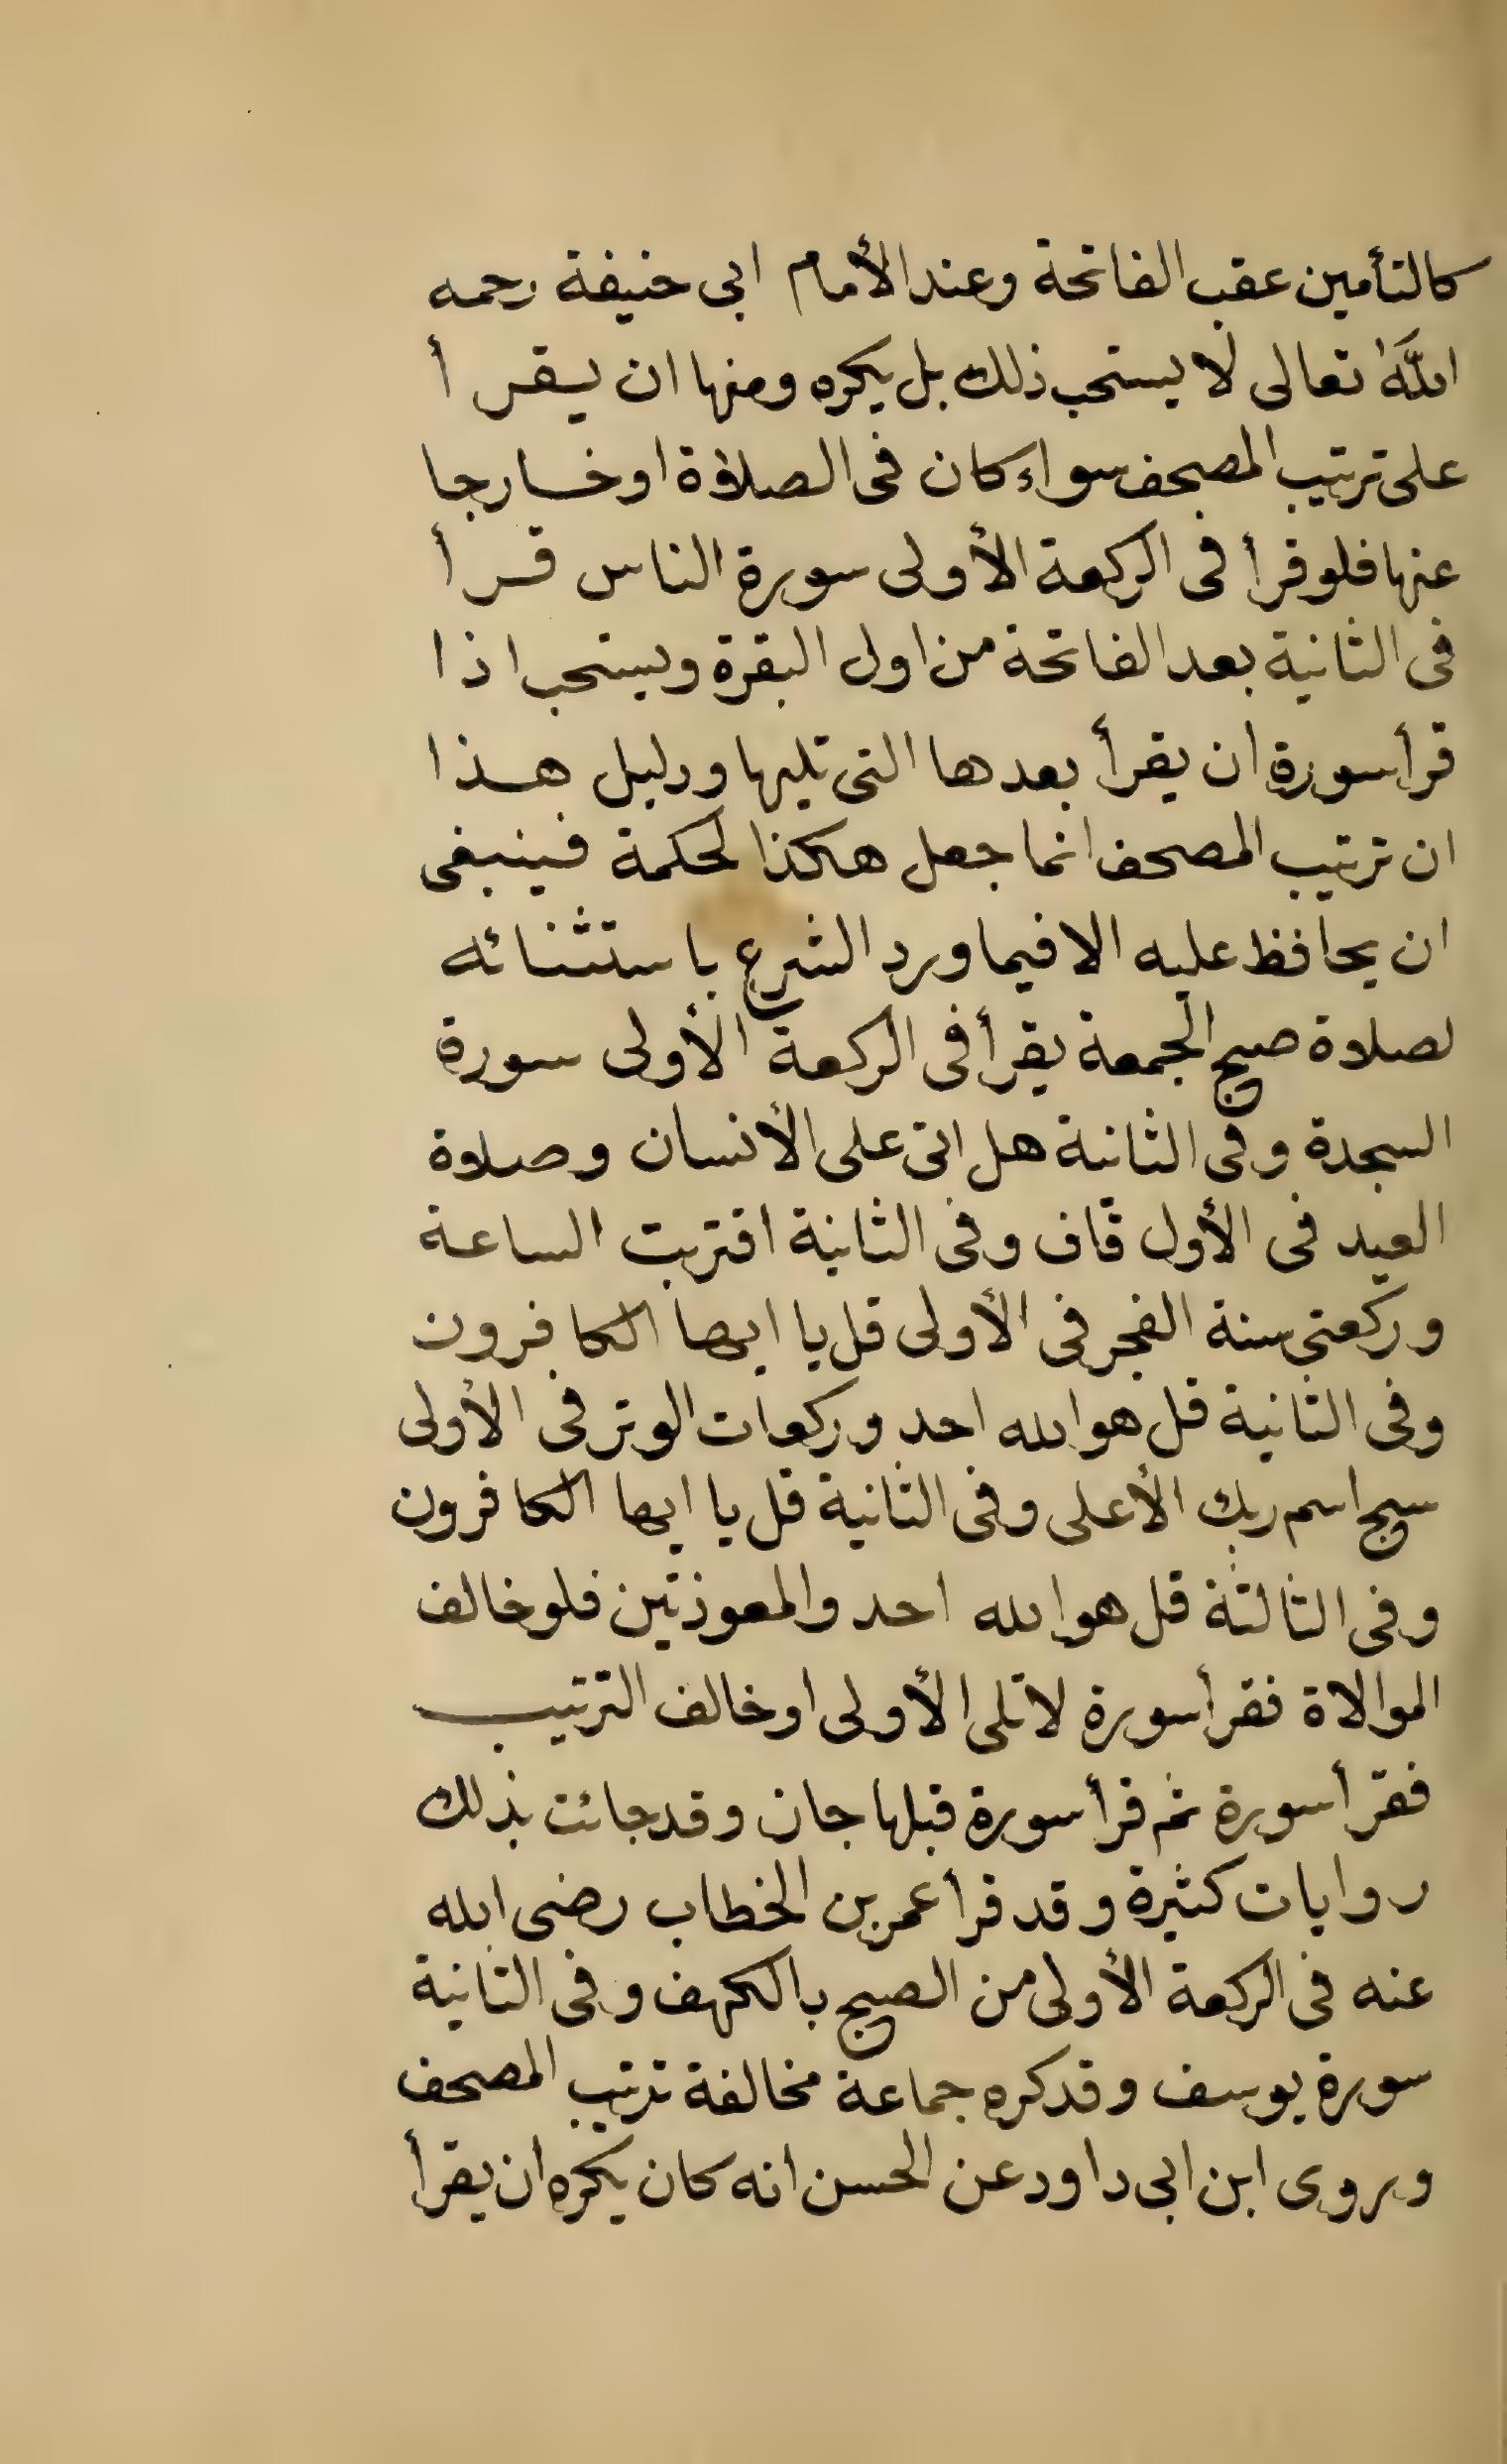 كالتأمين عقب الفاتحة وعند الأمام ابى حنيفة رحمه
الله تعالى لا يستحب ذلك بل يكره ومنها ان يقرأ
على ترتيب المصحف سواء كان فى الصلاة او خارجا
عنها فلو قرأ فى الركعة الأولى سورة الناس قرأ
فى الثانية بعد الفاتحة من اول البقرة ويستحب اذا
قرأ سورة ان يقرأ بعدها التى تليها ودليل هذا
ان ترتيب المصحف انما جعل هكذا لحكمة فينبغى
ان يحافظ عليه الا فيما ورد الشرع باستثنائه
لصلاة صبح الجمعة يقرأ فى الركعة الأولى سورة
السجدة وفى الثانية هل اتى على الأنسان وصلوة
العيد فى الأول قاف وفى الثانية اقتربت الساعة
وركعتى سنة الفجر فى الأولى قل يا ايها الكافرون
وفى الثانية قل هو الله احد وركعات الوتر فى الأولى
سبح اسم ربك الأعلى وفى الثانية قل يا ايها الكافرون
وفى الثالثة قل هو الله احد والمعوذتين فلو خالف
الموالاة فقرأ سورة لا تلى الأولى او خالف الترتيب
فقرأ سورة ثم قرأ سورة قبلها جاز وقد جائت بذلك
روايات كثيرة وقد قرأ عمر بن الخطاب رضى الله
عنه فى الركعة الأولى من الصبح بالكهف وفى الثانية
سورة يوسف وقد كره جماعة مخالفة ترتيب المصحف
وروى ابن ابى داود عن الحسن انه كان يكره ان يقرأ